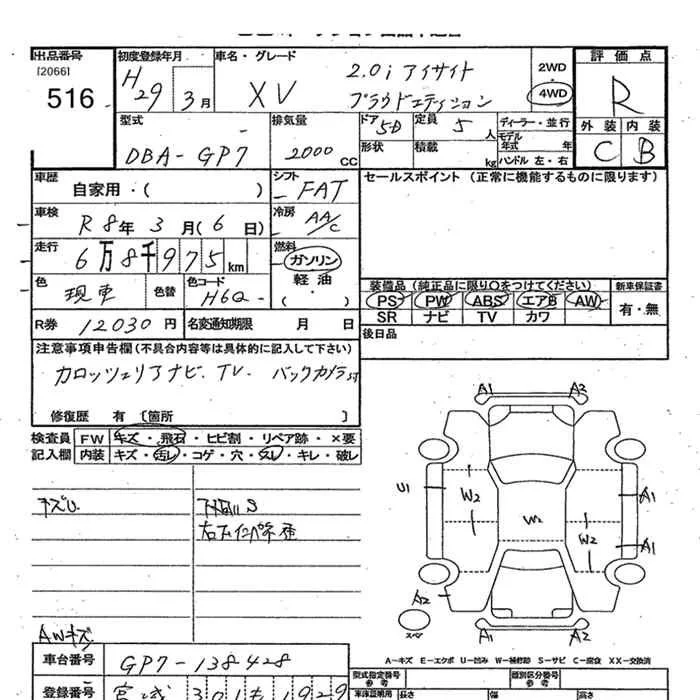 出品番号
[2066]
516
初度登録年月
H29 3月
車名・グレード
XV
2.0i アイサイト
プラウドエディション
2WD
4WD
評価点
R
外装 内装
C B
型式
DBA-GP7
排気量
2000 CC
ドア 5D
定員 5 人
形状
積載 kg
ディーラー・並行
モデル年式 年
ハンドル 左・右
車歴
自家用・( )
シフト
FAT
セールスポイント (正常に機能するものに限ります)
車検
R8年 3月(6日)
冷房
AA/C
走行
6万8千975km
燃料
ガソリン
軽油
( ・ )
色
現車
色替
色コード
H6Q-
装備品 (純正品に限り○をつけてください)
新車保証書
PS PW ABS エアB AW
SR ナビ TV カワ
有・無
R券 12030円
名変通知期限 月 日
後日品
注意事項申告欄(不具合内容等は具体的に記入して下さい)
カロッツェリアナビ. TV. バックカメラ付
修復歴 有 〔箇所 〕
検査員
記入欄
FW キズ・飛石・ヒビ割・リペア跡・×要
内装 キズ・汚レ・コゲ・穴・スレ・キレ・破レ
キズU
下回りS
AWキズ
A1 A2
U1
W2
W2
W2
A1
A1
A2
スペア
A1 A2
A-キズ E-エクボ U-凹み W-補修跡 S-サビ C-腐食 XX-交換済
車台番号
GP7-138428
登録番号
宮城 301
型式指定番号
類別区分番号
参考
車体証明用
長さ
幅
高さ